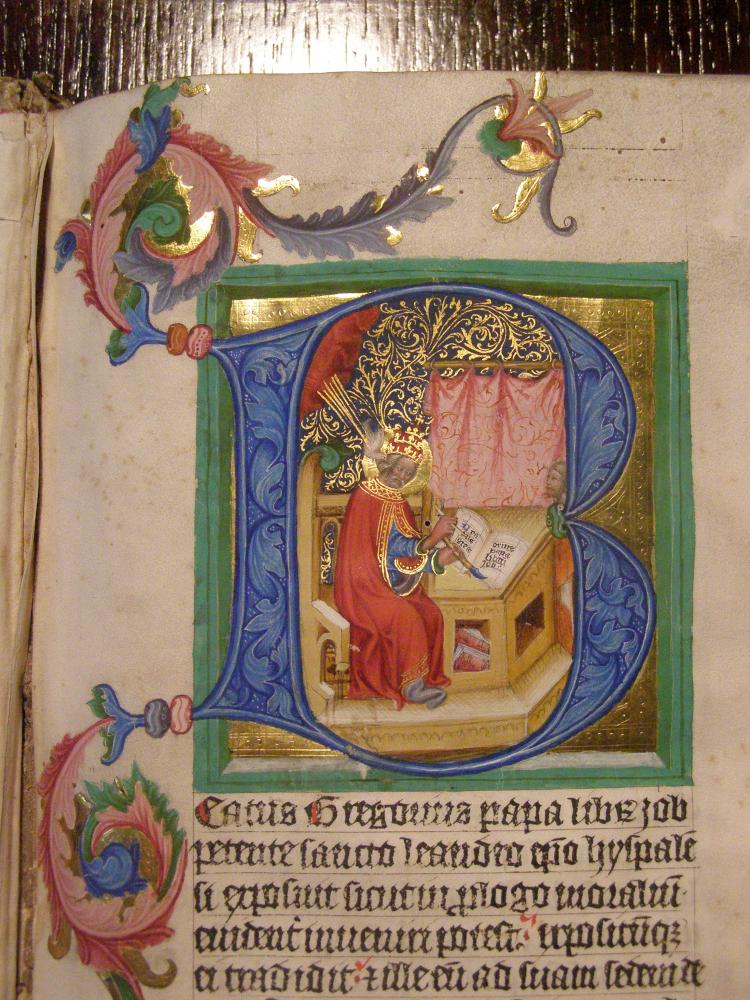 B
Eatus Gregorius papa librū Job
petente sancto leandro ep̄o hyspalē
si exposuit sicut in p̱logo moraliū
euident̄ inueniri potest. exposituq̃
et tradidit: et ille eū ad suam sedem de